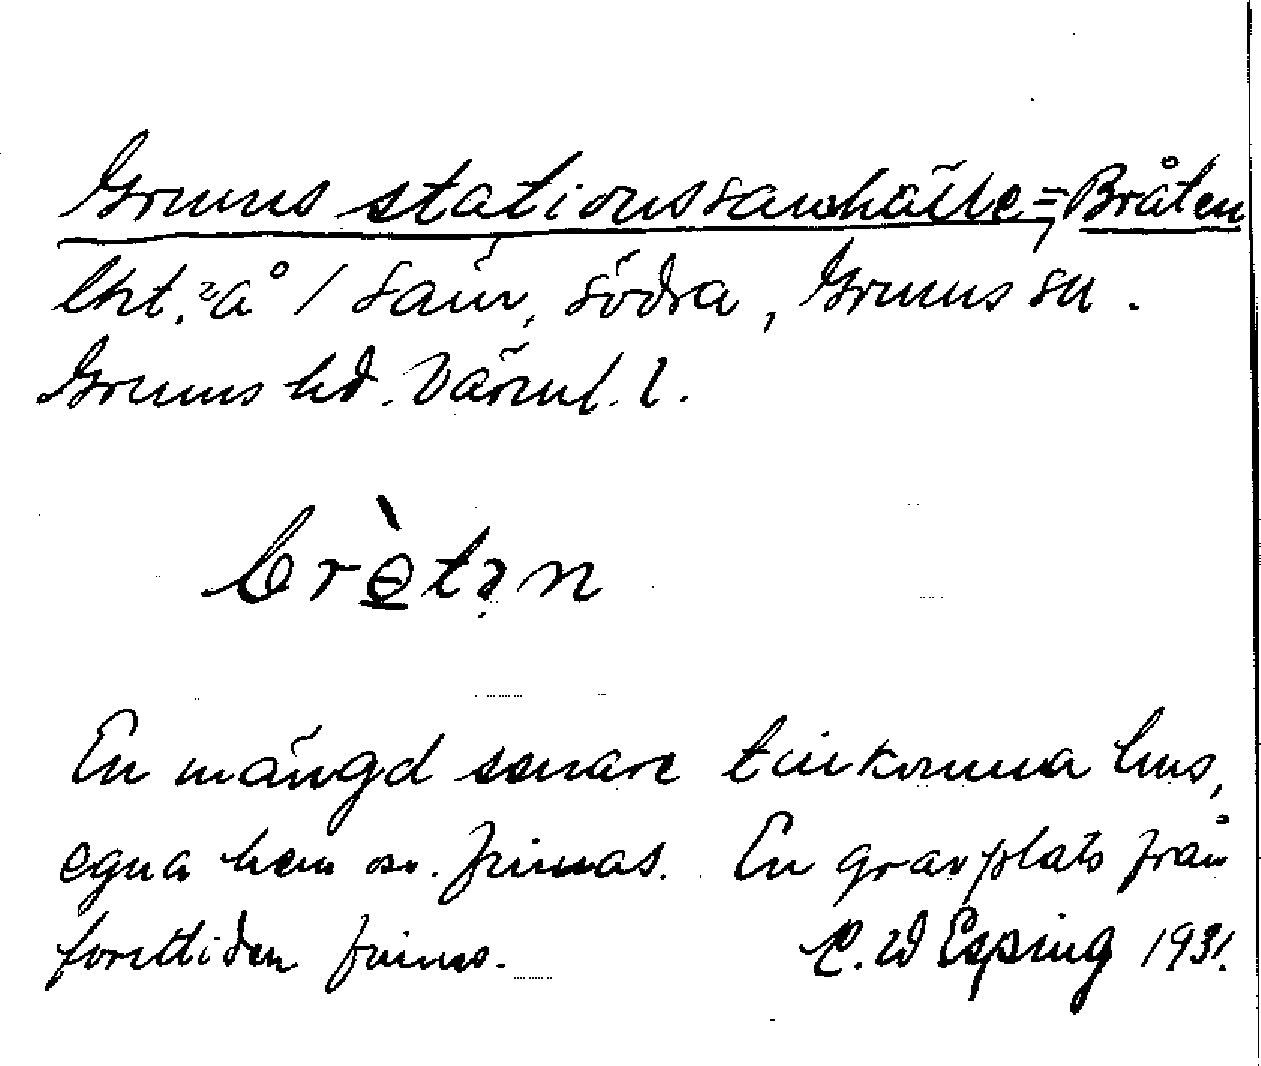 Grums stationssamhälle = Bråten
Grums sn.
Grums hd. Värml. l.
brètən
En mängd senare tillkomna hus,
egna hem osv. finnas. En gravplats från
forntiden finns. E. W Esping 1931.